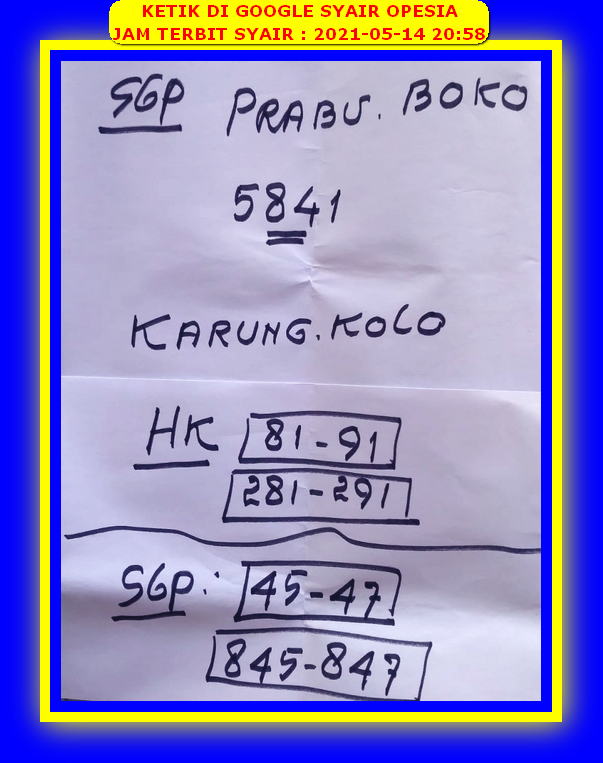 KETIK DI GOOGLE SYAIR OPESIA
JAM TERBIT SYAIR : 2021-05-14 20:58
SGP PRABU. BOKO
5841
KARUNG. KOLO
HK 81-91
281-291
SGP: 45-47
845-847